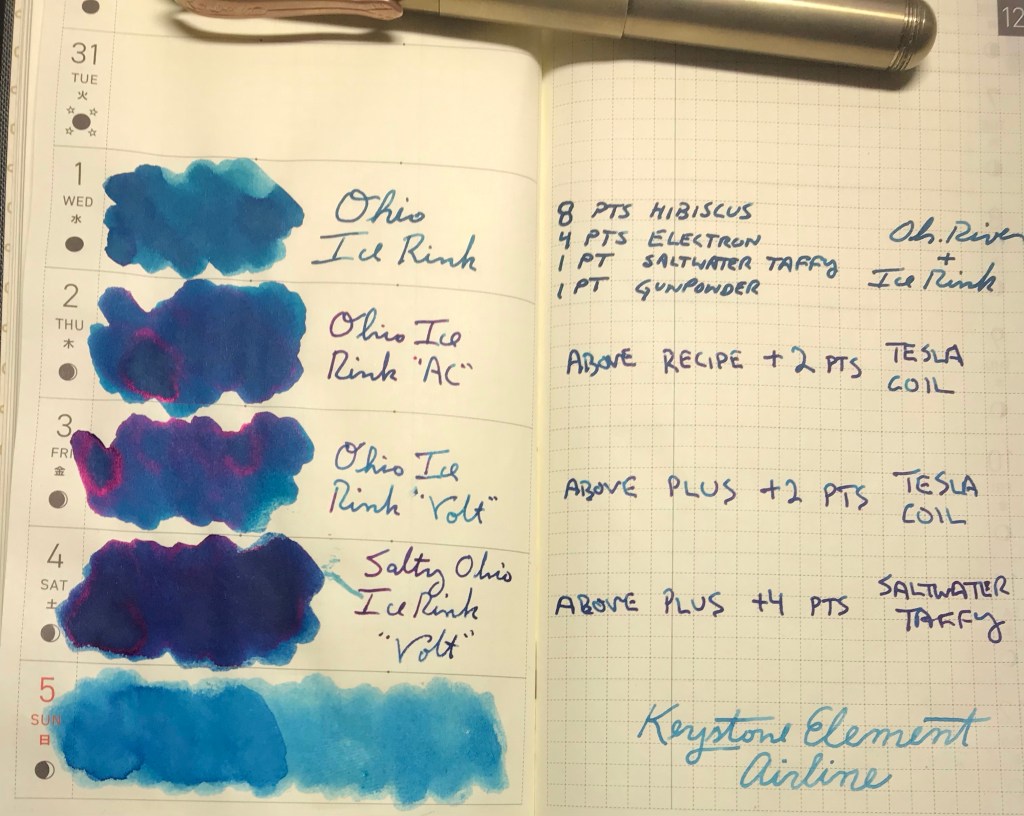 12
31
TUE
火
1
WED
水
Ohio
Ice Rink
8 PTS HIBISCUS
4 PTS ELECTRON
1 PT SALTWATER TAFFY
1 PT GUNPOWDER
Oh. River
+
Ice Rink
2
THU
木
Ohio Ice
Rink "AC"
ABOVE RECIPE + 2 PTS
TESLA
COIL
3
FRI
金
Ohio Ice
Rink "Volt"
ABOVE PLUS +2 PTS
TESLA
COIL
4
SAT
土
Salty Ohio
Ice Rink
"Volt"
ABOVE PLUS +4 PTS
SALTWATER
TAFFY
5
SUN
日
Keystone Element
Airline